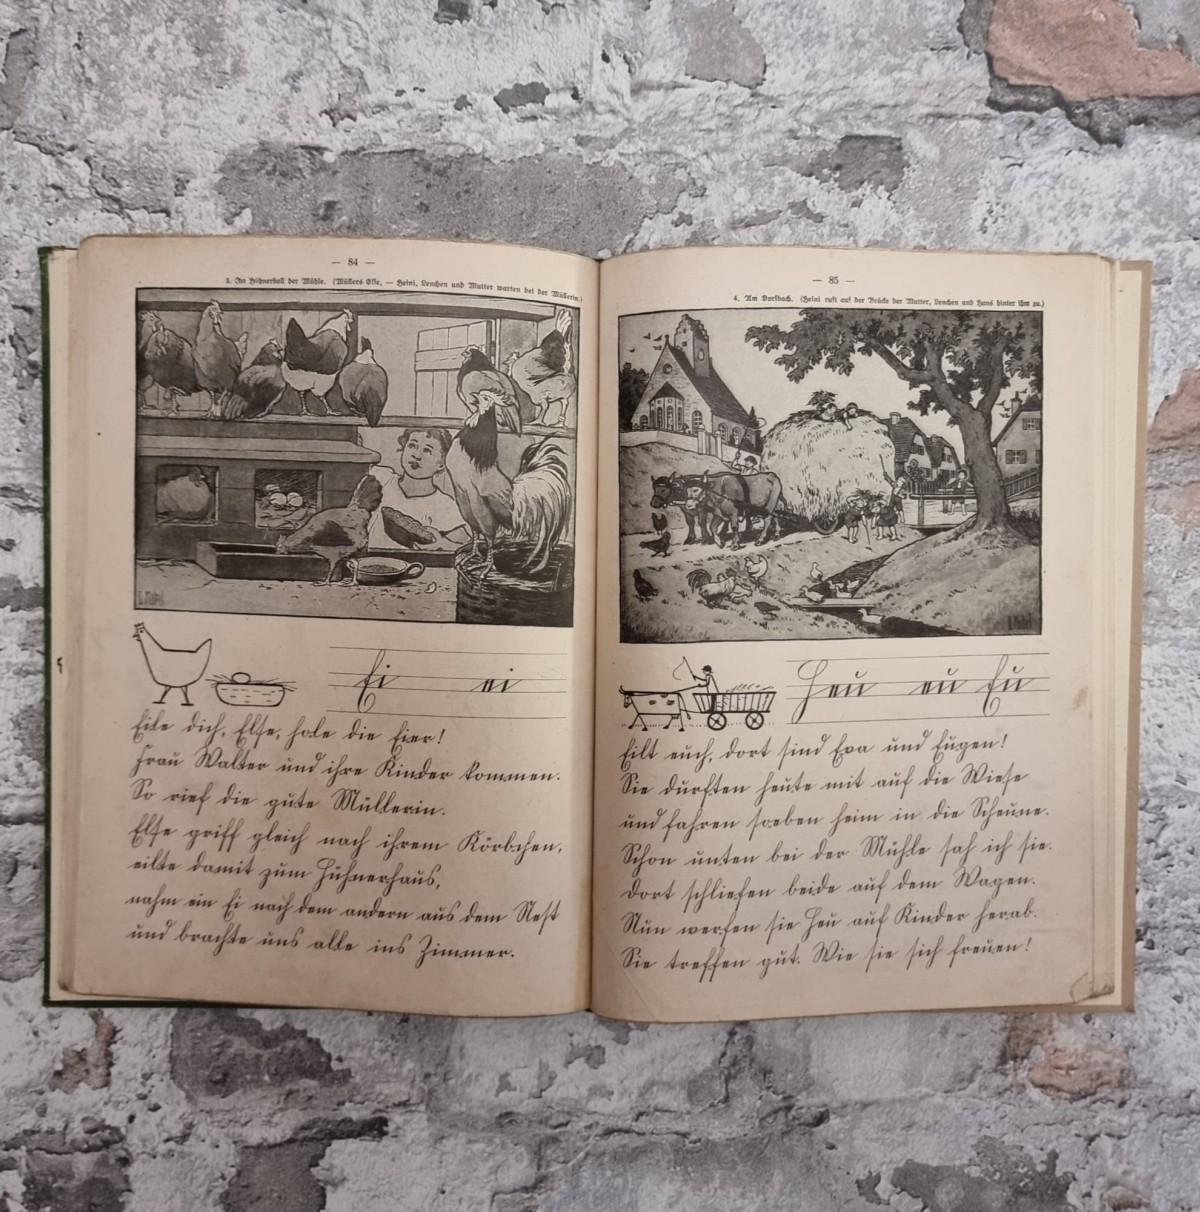 — 84 —
3. Im Hühnerstall der Mühle. (Müllers Else, — Heini, Lenchen und Mutter warten bei der Müllerin.)
Ei ei
Eile dich, Else, hole die Eier!
Frau Walter und ihre Kinder kommen.
So rief die gute Müllerin.
Else griff gleich nach ihrem Körbchen,
eilte damit zum Hühnerhaus,
nahm ein Ei nach dem andern aus dem Nest
und brachte uns alle ins Zimmer.
— 85 —
4. Am Dorfbach. (Heini ruft auf der Brücke der Mutter, Lenchen und Hans hinter ihm zu.)
Heu eu Eu
Eilt euch, dort sind Eva und Eugen!
Sie durften heute mit auf die Wiese
und fahren soeben heim in die Scheune.
Schon unten bei der Mühle sah ich sie.
Dort schliefen beide auf dem Wagen.
Nun werfen sie Heu auf Kinder herab.
Sie treffen gut. Wie sie sich freuen!